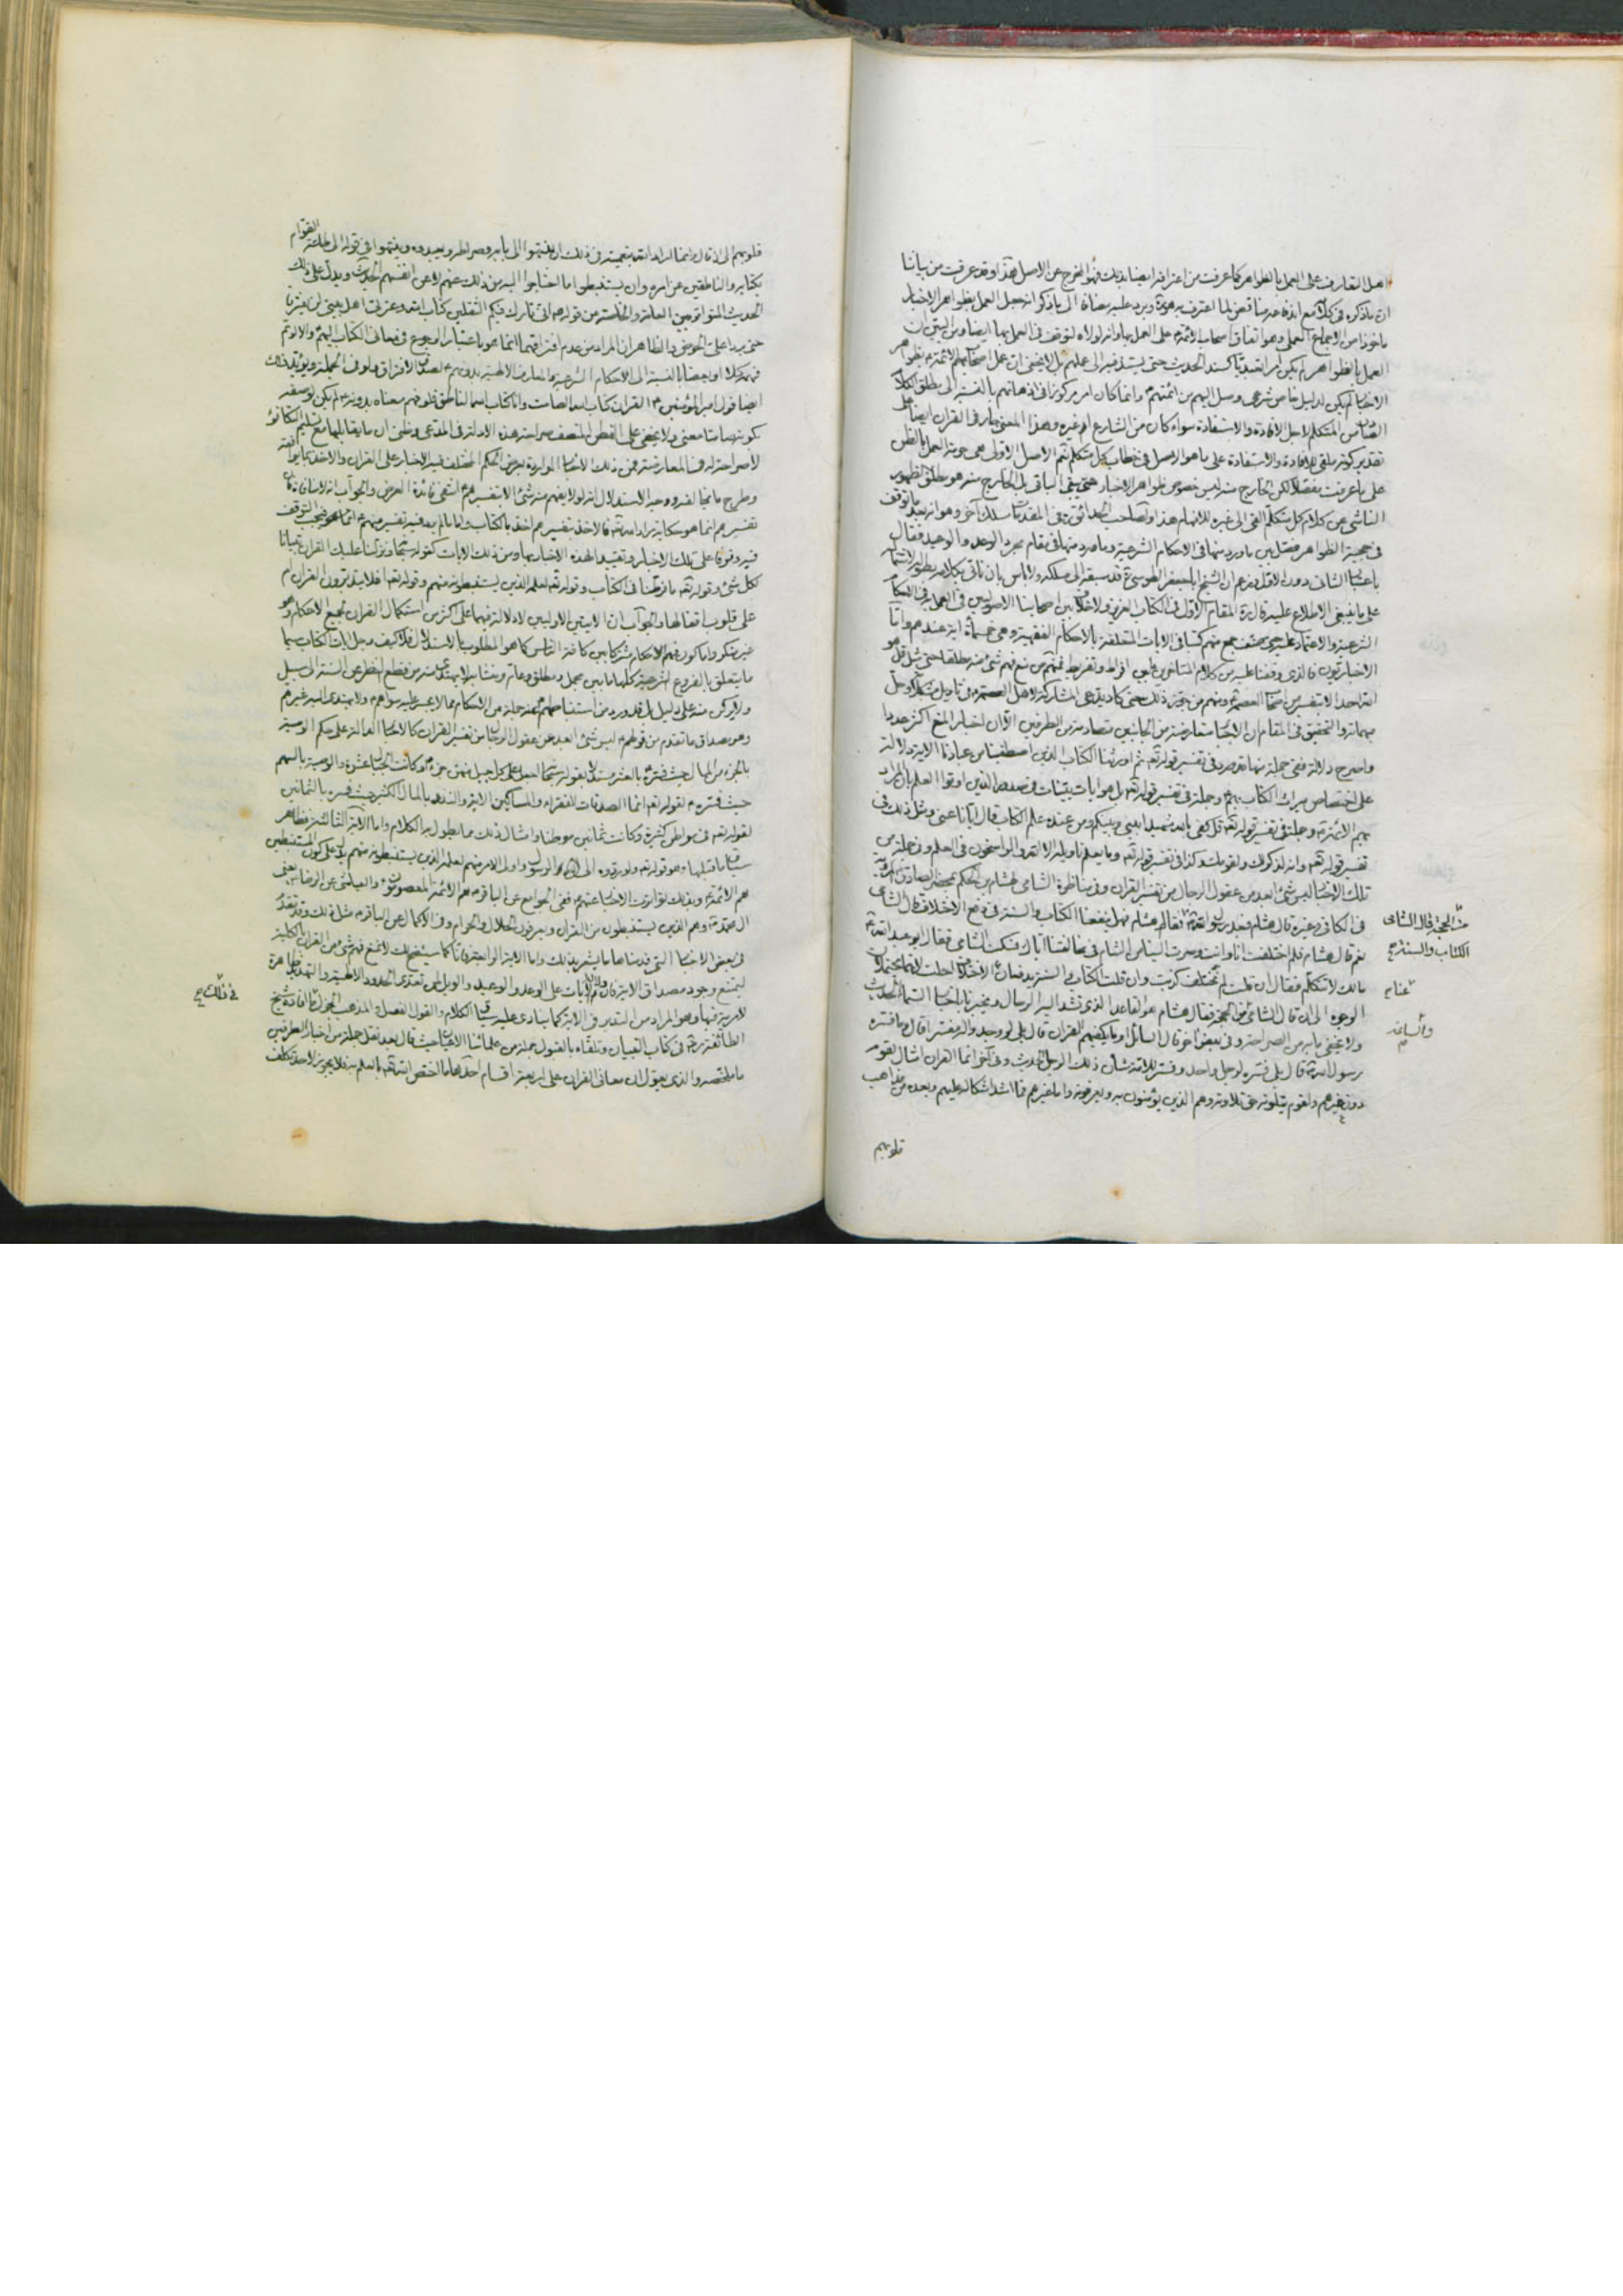 اهل التعارف على العمل بالظواهر كما عرفت من اعترافه ايضا بذلك فهو المخرج عن الاصل هذا وقد عرفت من بياننا
ان ما ذكره في كلامه
ماخوذا من الاجماع العملي وهو اتفاق اصحاب الائمة على العمل بها وانه لولاه لتوقف في العمل بها ايضا
العمل بالظواهر لم يكن امرا تعبديا كسند الحديث حتى يستند فيه الى عملهم بل لا يخفى ان عمل اصحابهم
الاخبار لم يكن لدليل خاص شرعي وصل اليهم من ائمتهم وانما كان امر مركوز في اذهانهم بالنسبة الى مطلق الكلام
الصادر من المتكلم لاجل الافادة والاستفادة سواء كان من الشارع ام غيره وهذا المعنى جار في القرآن ايضا على
تقدير كونه ملقى للافادة والاستفادة على ما هو الاصل في خطاب كل متكلم نعم الاصل الاولى هي حرمة العمل بالظن
على ما عرفت مفصلا لكن الخارج منه ليس خصوص ظواهر الاخبار حتى يبقى الباقي بل الخارج منه هو مطلق الظهور
الناشي عن كلام كل متكلم القي الى غيره للافهام هذا ولصاحب الحدائق في المقدمات مسلك آخر وهو انه بعد ما توقف
في حجية الظواهر فصل بين ما ورد منها في الاحكام الشرعية وما ورد منها في مقام مجرد الوعد والوعيد فقال
باعتبار الثاني دون الاول وزعم ان الشيخ ابا جعفر الطوسي قد سبقه الى مسلكه ولا باس بان ناتي بكلامه بطوله لاشتماله
على ما ينبغي الاطلاع عليه قال المقام الاول في الكتاب العزيز ولا خلاف بين اصحابنا الاصوليين في العمل به في الاحكام
الشرعية والاعتماد عليه حتى صنف جمع منهم كتبا في الآيات المتعلقة بالاحكام الفقهية وهي خمسمأة آية عندهم واما
الاخباريون فالذي وقفنا عليه من كلام المتاخرين ما بين افراط وتفريط فمنهم من منع فهم شئ منه مطلقا حتى مثل قل هو
الله احد الا بتفسير من اصحاب العصمة ومنهم من جوز ذلك حتى كاد يدعي المشاركة لاهل العصمة في تاويل مشكلاته وحل
مبهماته والتحقيق في المقام ان الاخبار متعارضة من الجانبين ومتصادمة من الطرفين الا ان اخبار المنع اكثر عددا
واصرح دلالة ففي جملة منها قد ورد في تفسير قوله تع ثم اورثنا الكتاب الذين اصطفينا من عبادنا الآية دلالة
على اختصاص ميراث الكتاب بهم وجملة في تفسير قوله تع بل هو آيات بينات في صدور الذين اوتوا العلم بان المراد
بهم الائمة وجملة في تفسير قوله تع قل كفى بالله شهيدا بيني وبينكم ومن عنده علم الكتاب قال ايانا عنى ومثل ذلك في
تفسير قوله تع وانه لذكر لك ولقومك وكذا في تفسير قوله تع وما يعلم تاويله الا الله والراسخون في العلم وفي جملة من
تلك الاخبار ليس شئ ابعد من عقول الرجال من تفسير القرآن وفي مناظرة الشامي لهشام بن الحكم بمحضر الصادق المروية
في الكافي وغيره قال هشام فبعد رسول الله من الحجة قال الشامي الكتاب والسنة قال هشام فهل ينفعنا الكتاب والسنة في رفع الاختلاف عنا قال الشامي
نعم قال هشام فلم اختلفت انا وانت وصرت الينا من الشام في مخالفتنا اياك فسكت الشامي فقال ابو عبد الله
مالك لا تتكلم فقال ان قلت لم نختلف كذبت وان قلت الكتاب والسنة يرفعان الاختلاف احلت لانهما يحتملان
الوجوه الى ان قال الشامي من الحجة فقال هشام هو القاعد الذي تشد اليه الرحال ويخبرنا باخبار السماء الحديث
ولا يخفى ما به من الصراحة وفي بعض آخر قال السائل وما يكفيهم القرآن قال بلى لو وجدوا له مفسرا قال وما فسره
رسول الله قال بلى فسره لرجل واحد وفسر للامة شان ذلك الرجل الحديث وفي آخر انما القرآن امثال لقوم
دون غيرهم ولقوم يتلونه حق تلاوته وهم الذين يؤمنون به ويعرفونه واما غيرهم فما اشد اشكاله عليهم وابعده من مذاهب
قلوبهم
قلوبهم الى ان قال وانما اراد الله بتعميته في ذلك ان ينتهوا الى بابه وصراطه ويعبدوه وينتهوا في قوله الى طاعة القوام
بكتابه والناطقين عن امره وان يستنبطوا ما احتاجوا اليه من ذلك عنهم لا عن انفسهم الحديث ويدل على ذلك
الحديث المتواتر بين العامة والخاصة من قوله اني تارك فيكم الثقلين كتاب الله وعترتي اهل بيتي لن يفترقا
حتى يردا علي الحوض فالظاهر ان المراد من عدم افتراقهما انما هو باعتبار الرجوع في معاني الكتاب اليهم والا لو تم
فهمه كلا او بعضا بالنسبة الى الاحكام الشرعية والمعارف الالهية بدونهم لصدق الافتراق ولو في الجملة ويؤيد ذلك
ايضا قول امير المؤمنين القرآن كتاب الله الصامت وانا كتاب الله الناطق فلو فهم معناه بدونه لم يكن لوصفه
بكونه صامتا معنى ولا يخفى على الفطن المنصف صراحة هذه الادلة في المدعى وظني ان ما يقابلها مع تسليم التكافؤ
لا صراحة له في المعارضة فمن ذلك الاخبار الواردة بعرض الحكم المختلف فيه الاخبار على القرآن والاخذ بما يوافقه
وطرح ما يخالفه ووجه الاستدلال انه لو لا يفهم منه شئ الا بتفسيرهم انتفى فائدة العرض والجواب انه لا منافاة فان
تفسيرهم انما هو حكاية مراد الله تع فالاخذ بتفسيرهم اخذ بالكتاب واما ما لم يرد فيه تفسير منهم فيجب التوقف
فيه وقوفا على تلك الاخبار وتقييدا لهذه الاخبار بها ومن ذلك الآيات كقوله سبحانه ونزلنا عليك القرآن تبيانا
لكل شئ وقوله تع ما فرطنا في الكتاب وقوله تع لعلمه الذين يستنبطونه منهم وقوله تع افلا يتدبرون القرآن ام
على قلوب اقفالها والجواب ان الآيتين الاوليين لا دلالة فيهما على اكثر من استكمال القرآن لجميع الاحكام وهو
غير منكر واما كون فهم الاحكام مشتركا بين كافة الناس كما هو المطلوب بالاستدلال فلا كيف وجل آيات الكتاب سيما
ما يتعلق بالفروع الشرعية كلها ما بين مجمل ومطلق وعام ومتشابه لا يهتدى منه مع قطع النظر عن السنة الى سبيل
ولا يركن منه على دليل بل قد ورد من استنباطهم منه جملة من الاحكام مما لا يجسر عليه سواهم ولا يهتدي اليه غيرهم
وهو مصداق ما تقدم من قولهم ليس شئ ابعد من عقول الرجال من تفسير القرآن كالاخبار الدالة على حكم الوصية
بالجزء من المال حيث فسره بالعشر مستدلا بقوله سبحانه ثم اجعل على كل جبل منهن جزءا وكانت الجبال عشرة والوصية بالسهم
حيث فسره بقوله تع انما الصدقات للفقراء والمساكين الآية والنذر بالمال الكثير حيث فسره بالثمانين
لقوله تع في مواطن كثيرة وكانت ثمانين موطنا وامثال ذلك مما يطول به الكلام واما الآية الثالثة فظاهر
سياق ما قبلها وهو قوله تع ولو ردوه الى الله والرسول والى اولي الامر منهم لعلمه الذين يستنبطونه منهم يدل على كون المستنبطين
هم الائمة وبذلك تواترت الاخبار عنهم ففي الجوامع عن الباقر هم الائمة المعصومون والعياشي عن الرضا يعني
آل محمد وهم الذين يستنبطون من القرآن ويعرفون الحلال والحرام وفي الاكمال عن الباقر مثل ذلك وقد تقدم
في بعض الاخبار التي قدمناها ما يشعر بذلك واما الآية الرابعة فانا كما سيتضح لك لا نمنع فهم شئ من القرآن بالكلية
ليمتنع وجود مصداق الآية فان دلالة الآيات على الوعد والوعيد والويل لمن تعدى الحدود الالهية والتهديد ظاهرة
لا مرية فيها وهو المراد من التدبر في الآية كما ينادي عليه سياق الكلام والقول الفصل والمذهب الجزل في ذلك ما افاده شيخ
الطائفة في كتاب التبيان وتلقاه بالقبول جملة من علمائنا الاعيان حيث قال بعد نقل جملة من اخبار الطرفين
ما ملخصه والذي نقول ان معاني القرآن على اربعة اقسام احدها ما اختص الله تع بالعلم به فلا يجوز لاحد تكلف